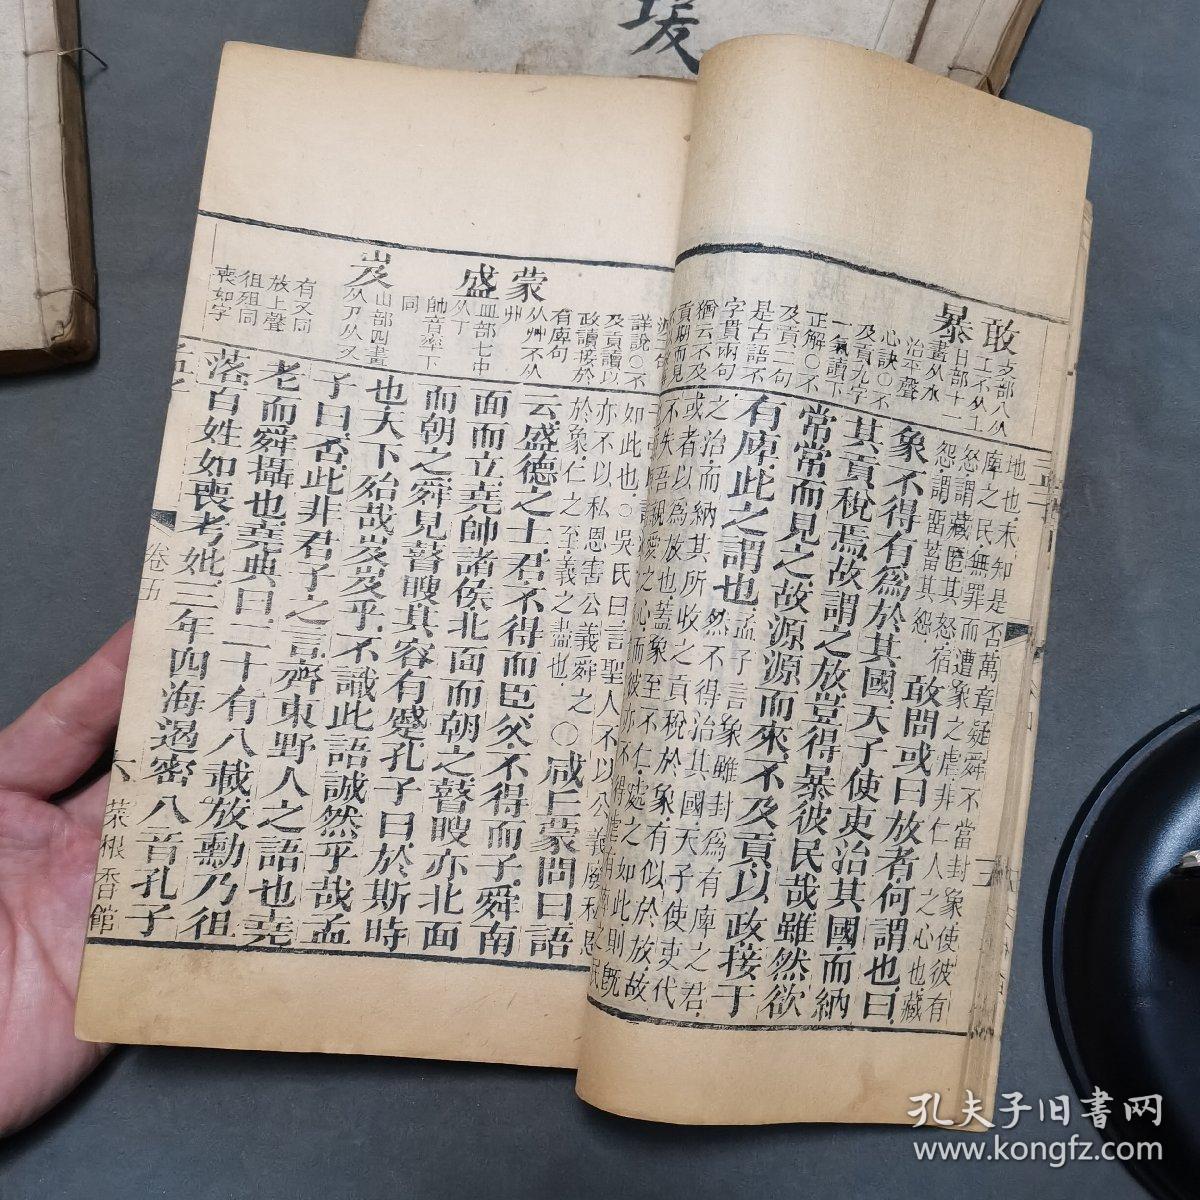 敢
工支部八从
工不从工
暴
日部十一
畫从水
治平聲
心訣〇不
及貢九字
一氣讀下
正解〇不
及貢二句
是古語不
字貫兩句
猶云不及
貢期而見
地也未知是否萬章疑舜不當封象使彼有
庳之民無罪而遭象之虐非仁人之心也藏
怒謂藏匿其怒宿
怨謂留蓄其怨
敢問或曰放者何謂也曰
象不得有為於其國天子使吏治其國而納
其貢稅焉故謂之放豈得暴彼民哉雖然欲
常常而見之故源源而來不及貢以政接于
有庳此之謂也
孟子言象雖封為有庳之君
然不得治其國天子使吏代
之治而納其所收之貢稅於象有似於放故
或者以為放也蓋象至不仁處之如此則既
不失吾親愛之心而彼亦不得虐有庳之民
詳說〇不
及貢讀以
政讀接於
有庳句
蒙
从艸不从
州
盛
皿部七中
从丁
帥音率下
同
岌
山部四畫
从乃从又
有又同
放上聲
徂殂同
喪如字
如此也〇吳氏曰言聖人不以公義廢私恩
亦不以私恩害公義舜之
於象仁之至義之盡也
〇咸丘蒙問曰語
云盛德之士君不得而臣父不得而子舜南
面而立堯帥諸侯北面而朝之瞽瞍亦北面
而朝之舜見瞽瞍其容有蹙孔子曰於斯時
也天下殆哉岌岌乎不識此語誠然乎哉孟
子曰否此非君子之言齊東野人之語也堯
老而舜攝也堯典曰二十有八載放勳乃徂
落百姓如喪考妣三年四海遏密八音孔子
卷五
六
菜根香館
孔夫子旧書网
www.kongfz.com